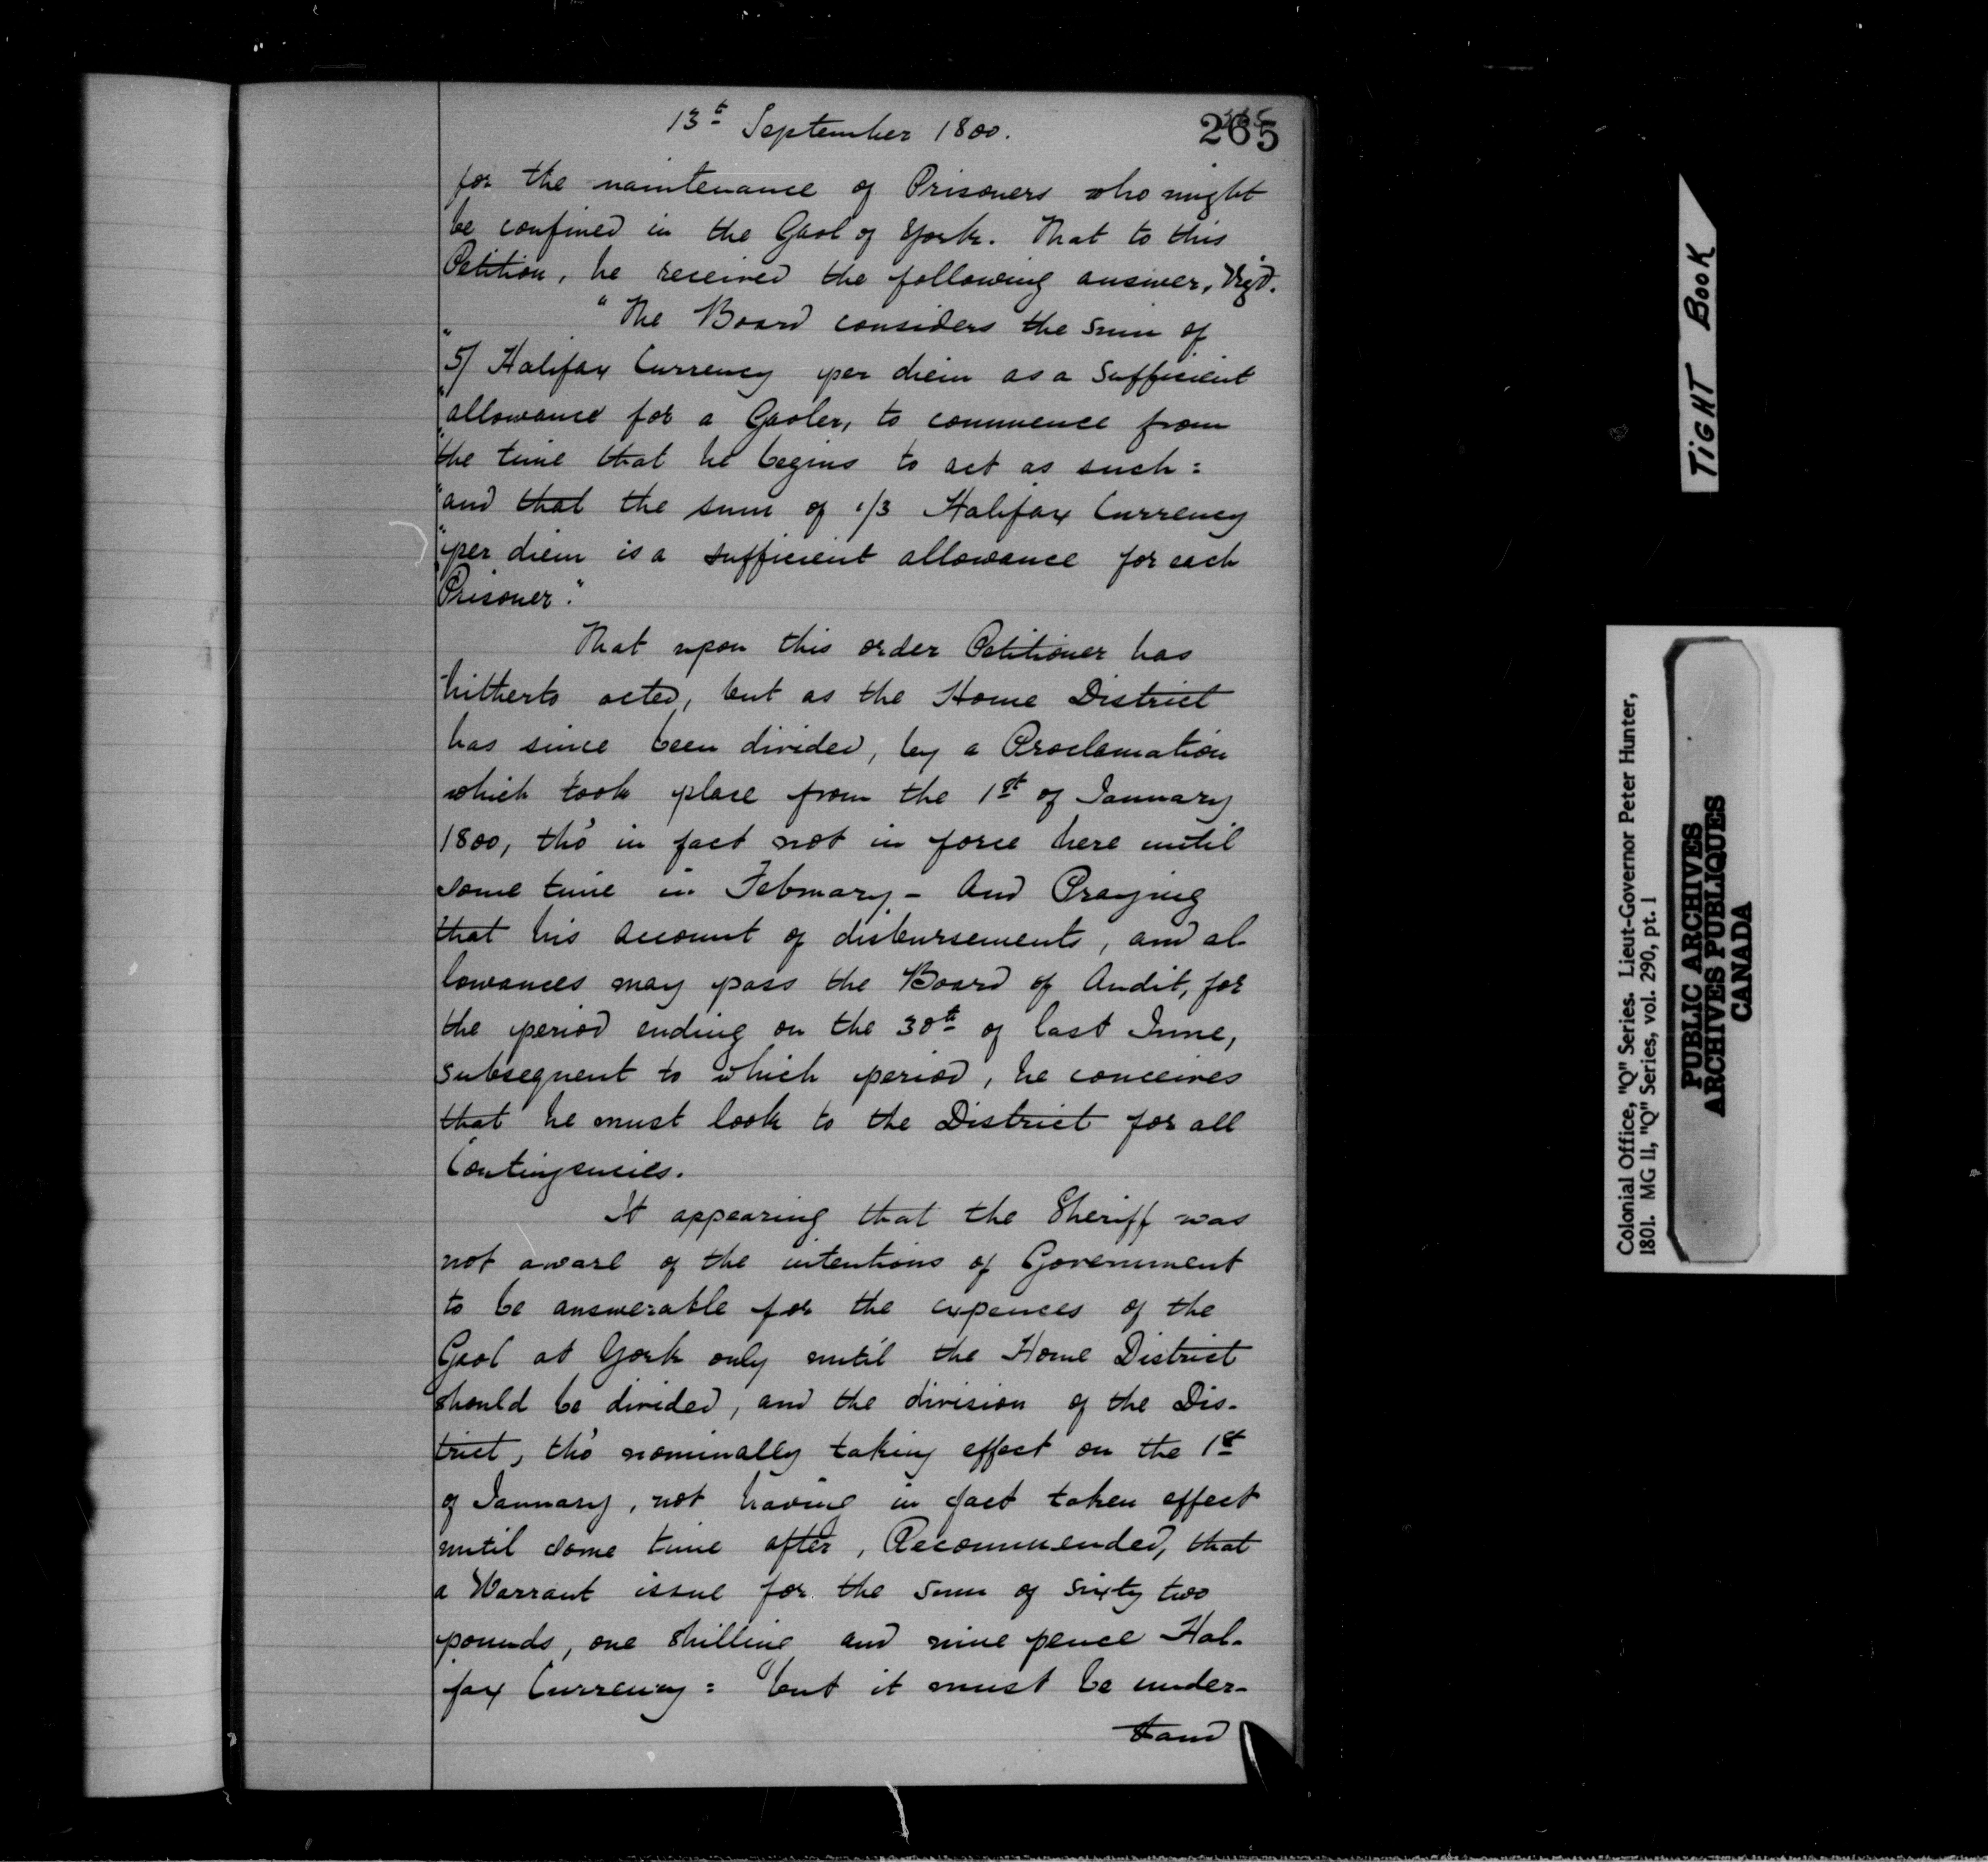 13th September 1800.
265
for the maintenance of Prisoners who might
be confined in the Gaol of York. That to this
Petition, he received the following answer,
"The Board considers the sum of
"5/ Halifax Currency per diem as a sufficient
"allowance for a Gaoler, to commence from
"the time that he begins to act as such:
"and that the sum of 1/3 Halifax Currency
"per diem is a sufficient allowance for each
Prisoner."
That upon this order Petitioner has
hitherto acted, but as the Home District
has since been divided, by a Proclamation
which took place from the 1st of January
1800, tho' in fact not in force here until
some time in February - And Praying
that his account of disbursements, and al-
lowances may pass the Board of Audit, for
the period ending on the 30th of last June,
subsequent to which period, he conceives
that he must look to the District for all
Contingencies.
It appearing that the Sheriff was
not aware of the intentions of Government
to be answerable for the expences of the
Gaol at York only until the Home District
should be divided, and the division of the Dis-
trict, tho' nominally taking effect on the 1st
of January, not having in fact taken effect
until some time after, Recommended, that
a Warrant issue for the sum of sixty two
pounds, one shilling and nine pence Hal-
fax Currency: but it must be under-
stand
TIGHT BOOK
Colonial Office, "Q" Series. Lieut-Governor Peter Hunter,
1801. MG 11, "Q" Series, vol. 290, pt. 1
PUBLIC ARCHIVES
ARCHIVES PUBLIQUES
CANADA